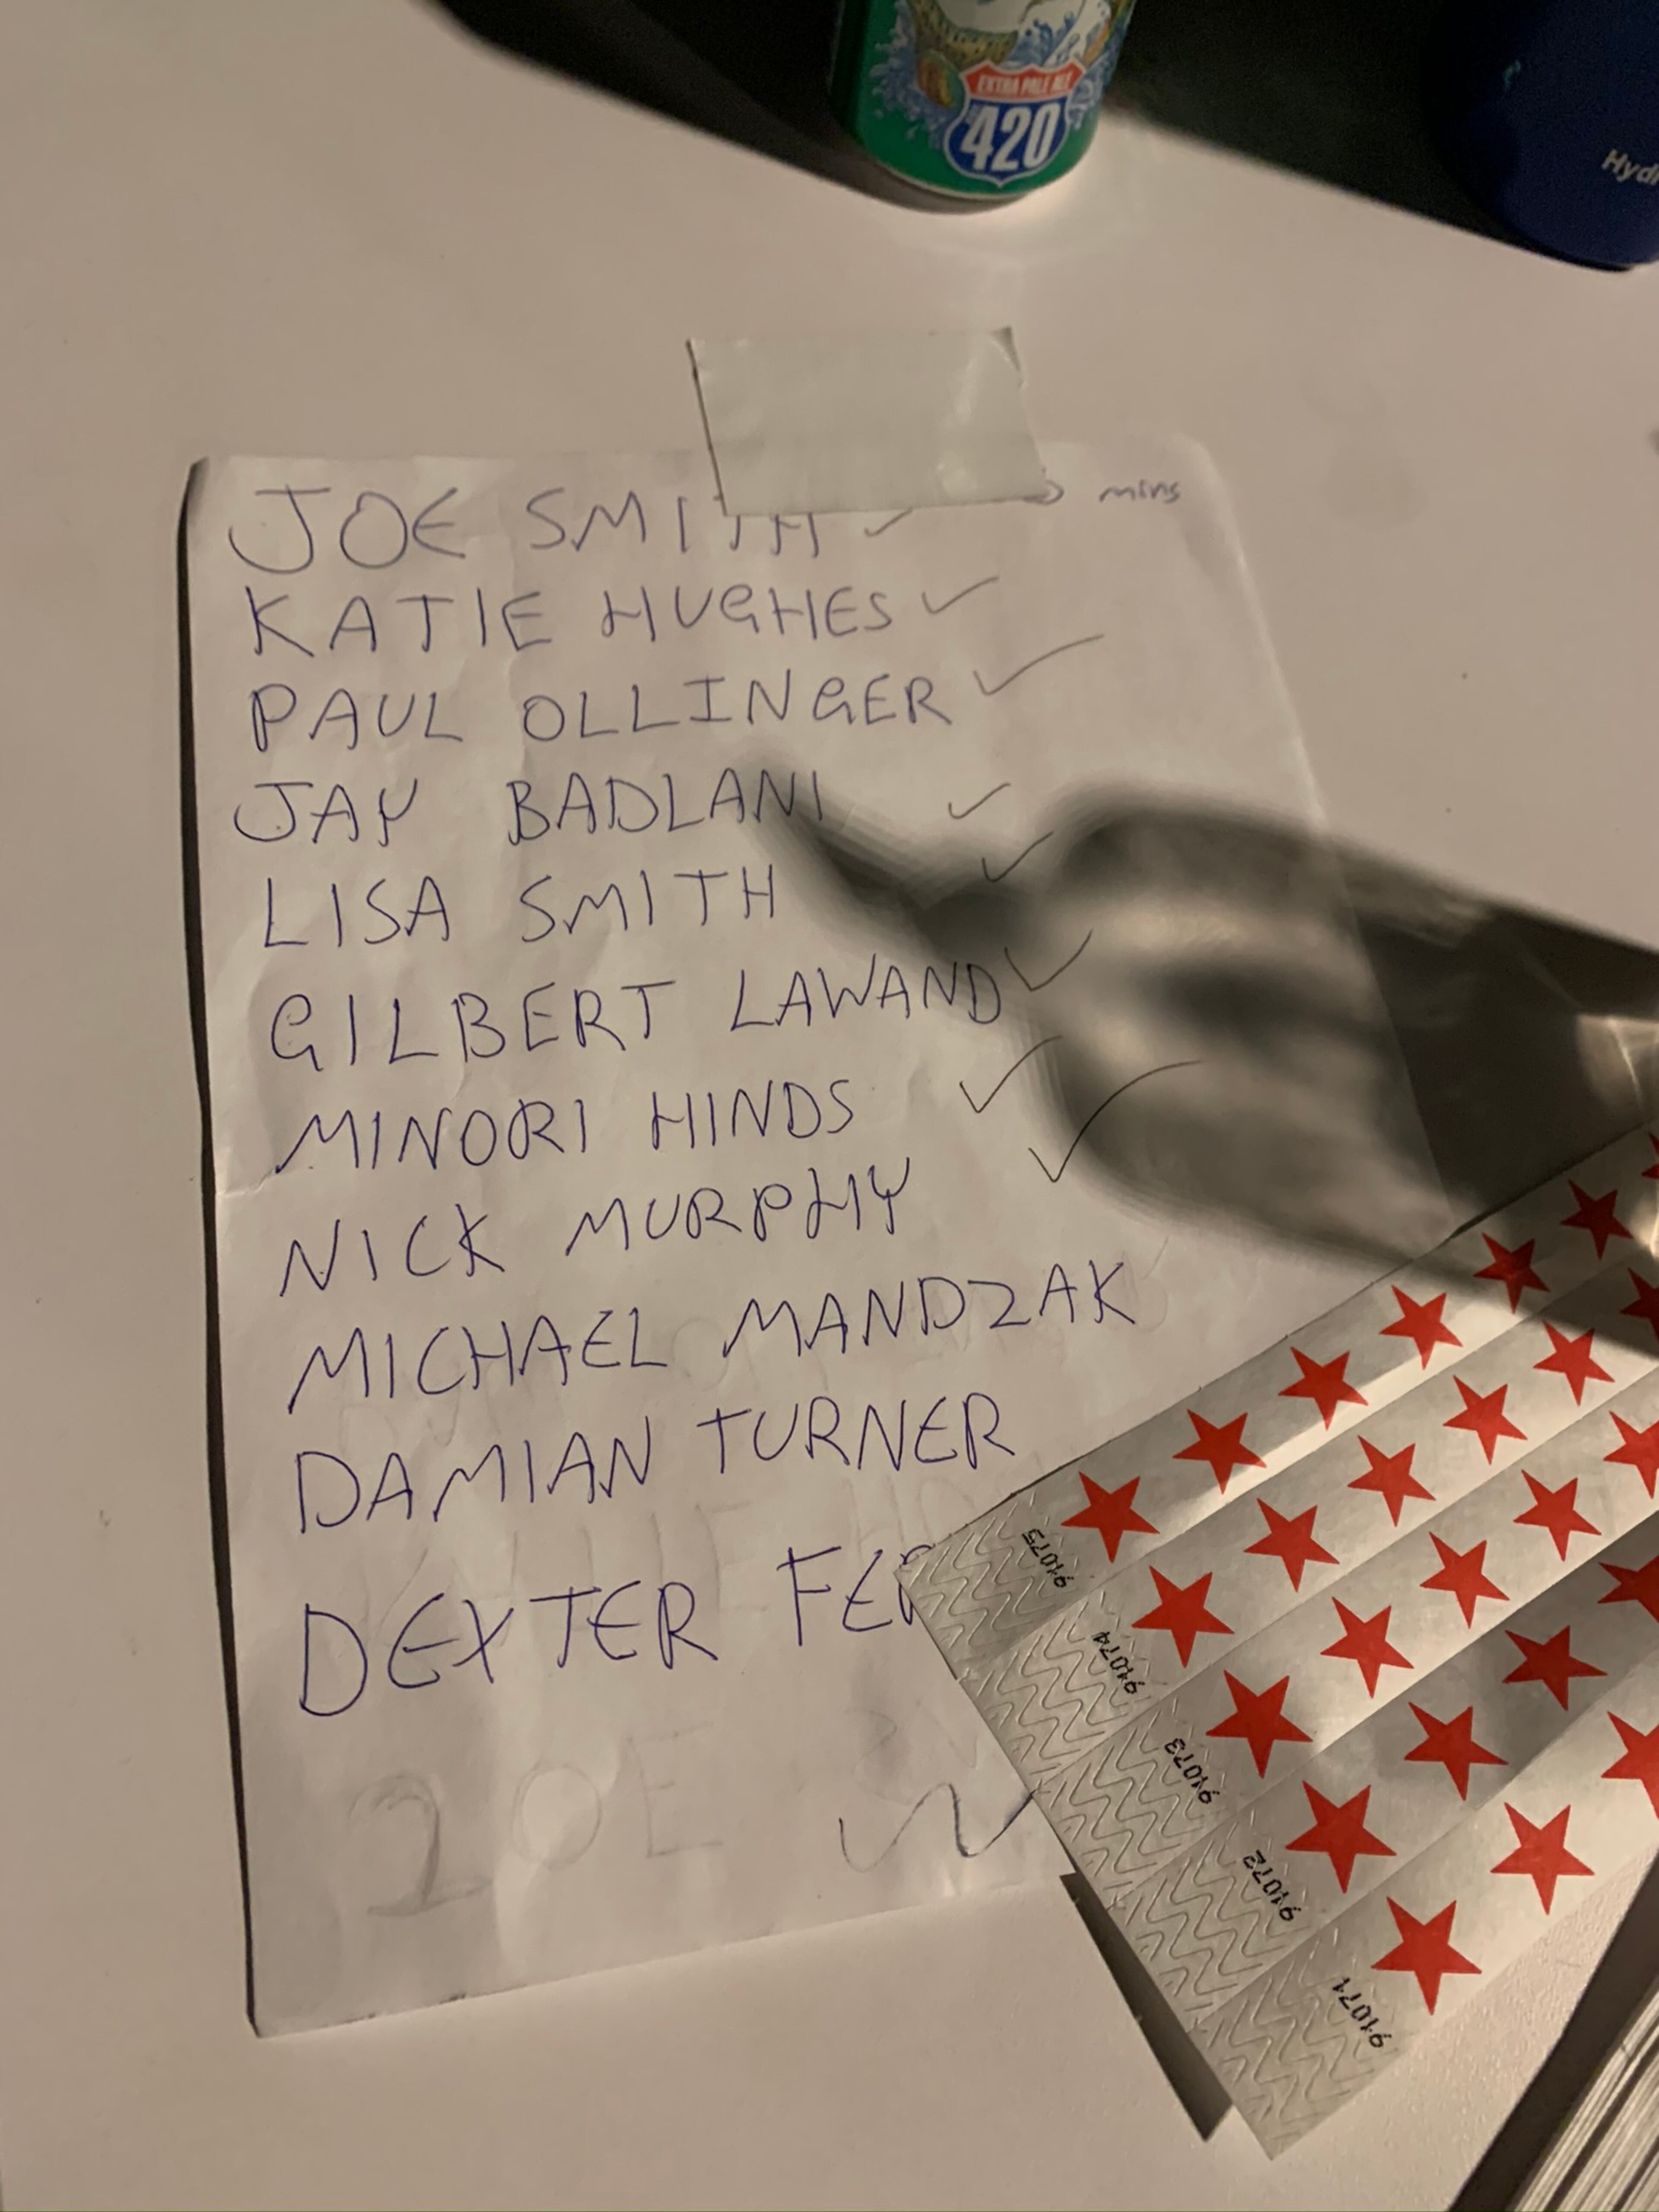 EXTRA PALE ALE
420
mins
JOE SMITH ✓
KATIE HUGHES ✓
PAUL OLLINGER ✓
JAY BADLANI ✓
LISA SMITH ✓
GILBERT LAWAND ✓
MINORI HINDS ✓
NICK MURPHY ✓
MICHAEL MANDZAK
DAMIAN TURNER
DEXTER
91075
91074
91073
91072
91071